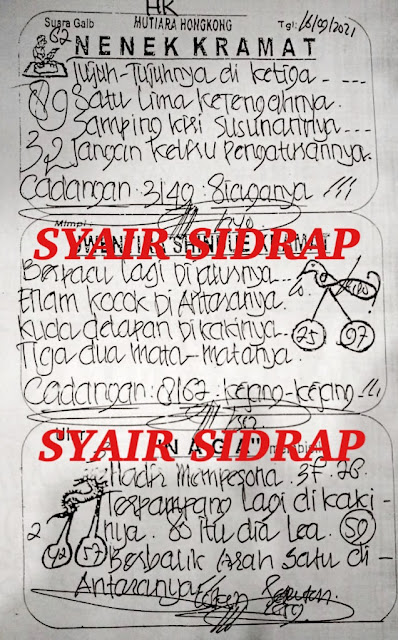 HK
Suara Gaib MUTIARA HONGKONG Tgl: 16/09/2021
62 NENEK KRAMAT
Tujuh-Tujuhnya di ketiga
89 Satu Lima Ketengahnya.
Samping Kiri Susunannya
32 Jangan Keliru Pengaturannya.
Cadangan: 3/49: 8 juganya !!!
Mimpi:
SYAIR SIDRAP
Berpacu lagi Di
Enam Kocok Di Antaranya.
Kuda delapan Di kakinya
25 97
Tiga dua mata-matanya.
Cadangan: 8/67: Kejang-Kejang !!!
SYAIR SIDRAP
Hadir Mempesona. 37. 78.
Terpampang lagi di kaki-
2 nya. 80 itu dia Lea. 50
42 57 Berbalik Arah Satu di-
Antaranya